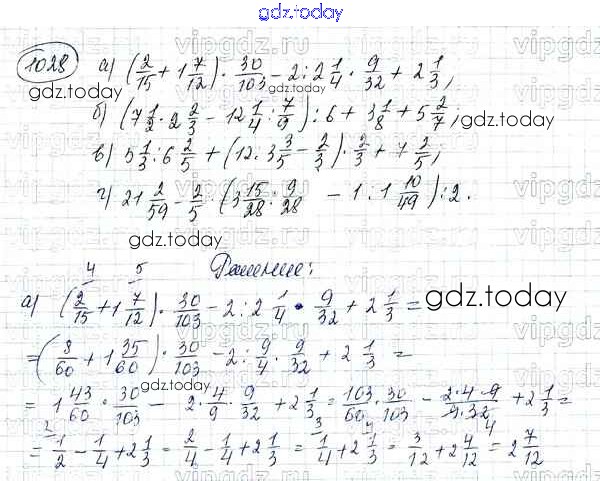 gdz.today
1028 а) (2/15 + 1 7/12) · 30/103 − 2 : 2 1/4 · 9/32 + 2 1/3;
б) (7 1/2 · 2 2/3 − 12 1/4 : 7/9) : 6 + 3 1/8 + 5 2/7;
в) 5 1/3 : 6 2/5 + (12 · 3 3/5 − 2/3) · 2/3 + 7 2/5;
г) 21 2/59 − 2/5 · (3 15/28 : 9/28 − 1 : 1 10/49) : 2.
Решение:
а) (2/15 + 1 7/12) · 30/103 − 2 : 2 1/4 · 9/32 + 2 1/3 =
= (8/60 + 1 35/60) · 30/103 − 2 : 9/4 · 9/32 + 2 1/3 =
= 1 43/60 · 30/103 − 2 · 4/9 · 9/32 + 2 1/3 = 103·30/60·103 − 2·4·9/9·32 + 2 1/3 =
= 1/2 − 1/4 + 2 1/3 = 2/4 − 1/4 + 2 1/3 = 1/4 + 2 1/3 = 3/12 + 2 4/12 = 2 7/12